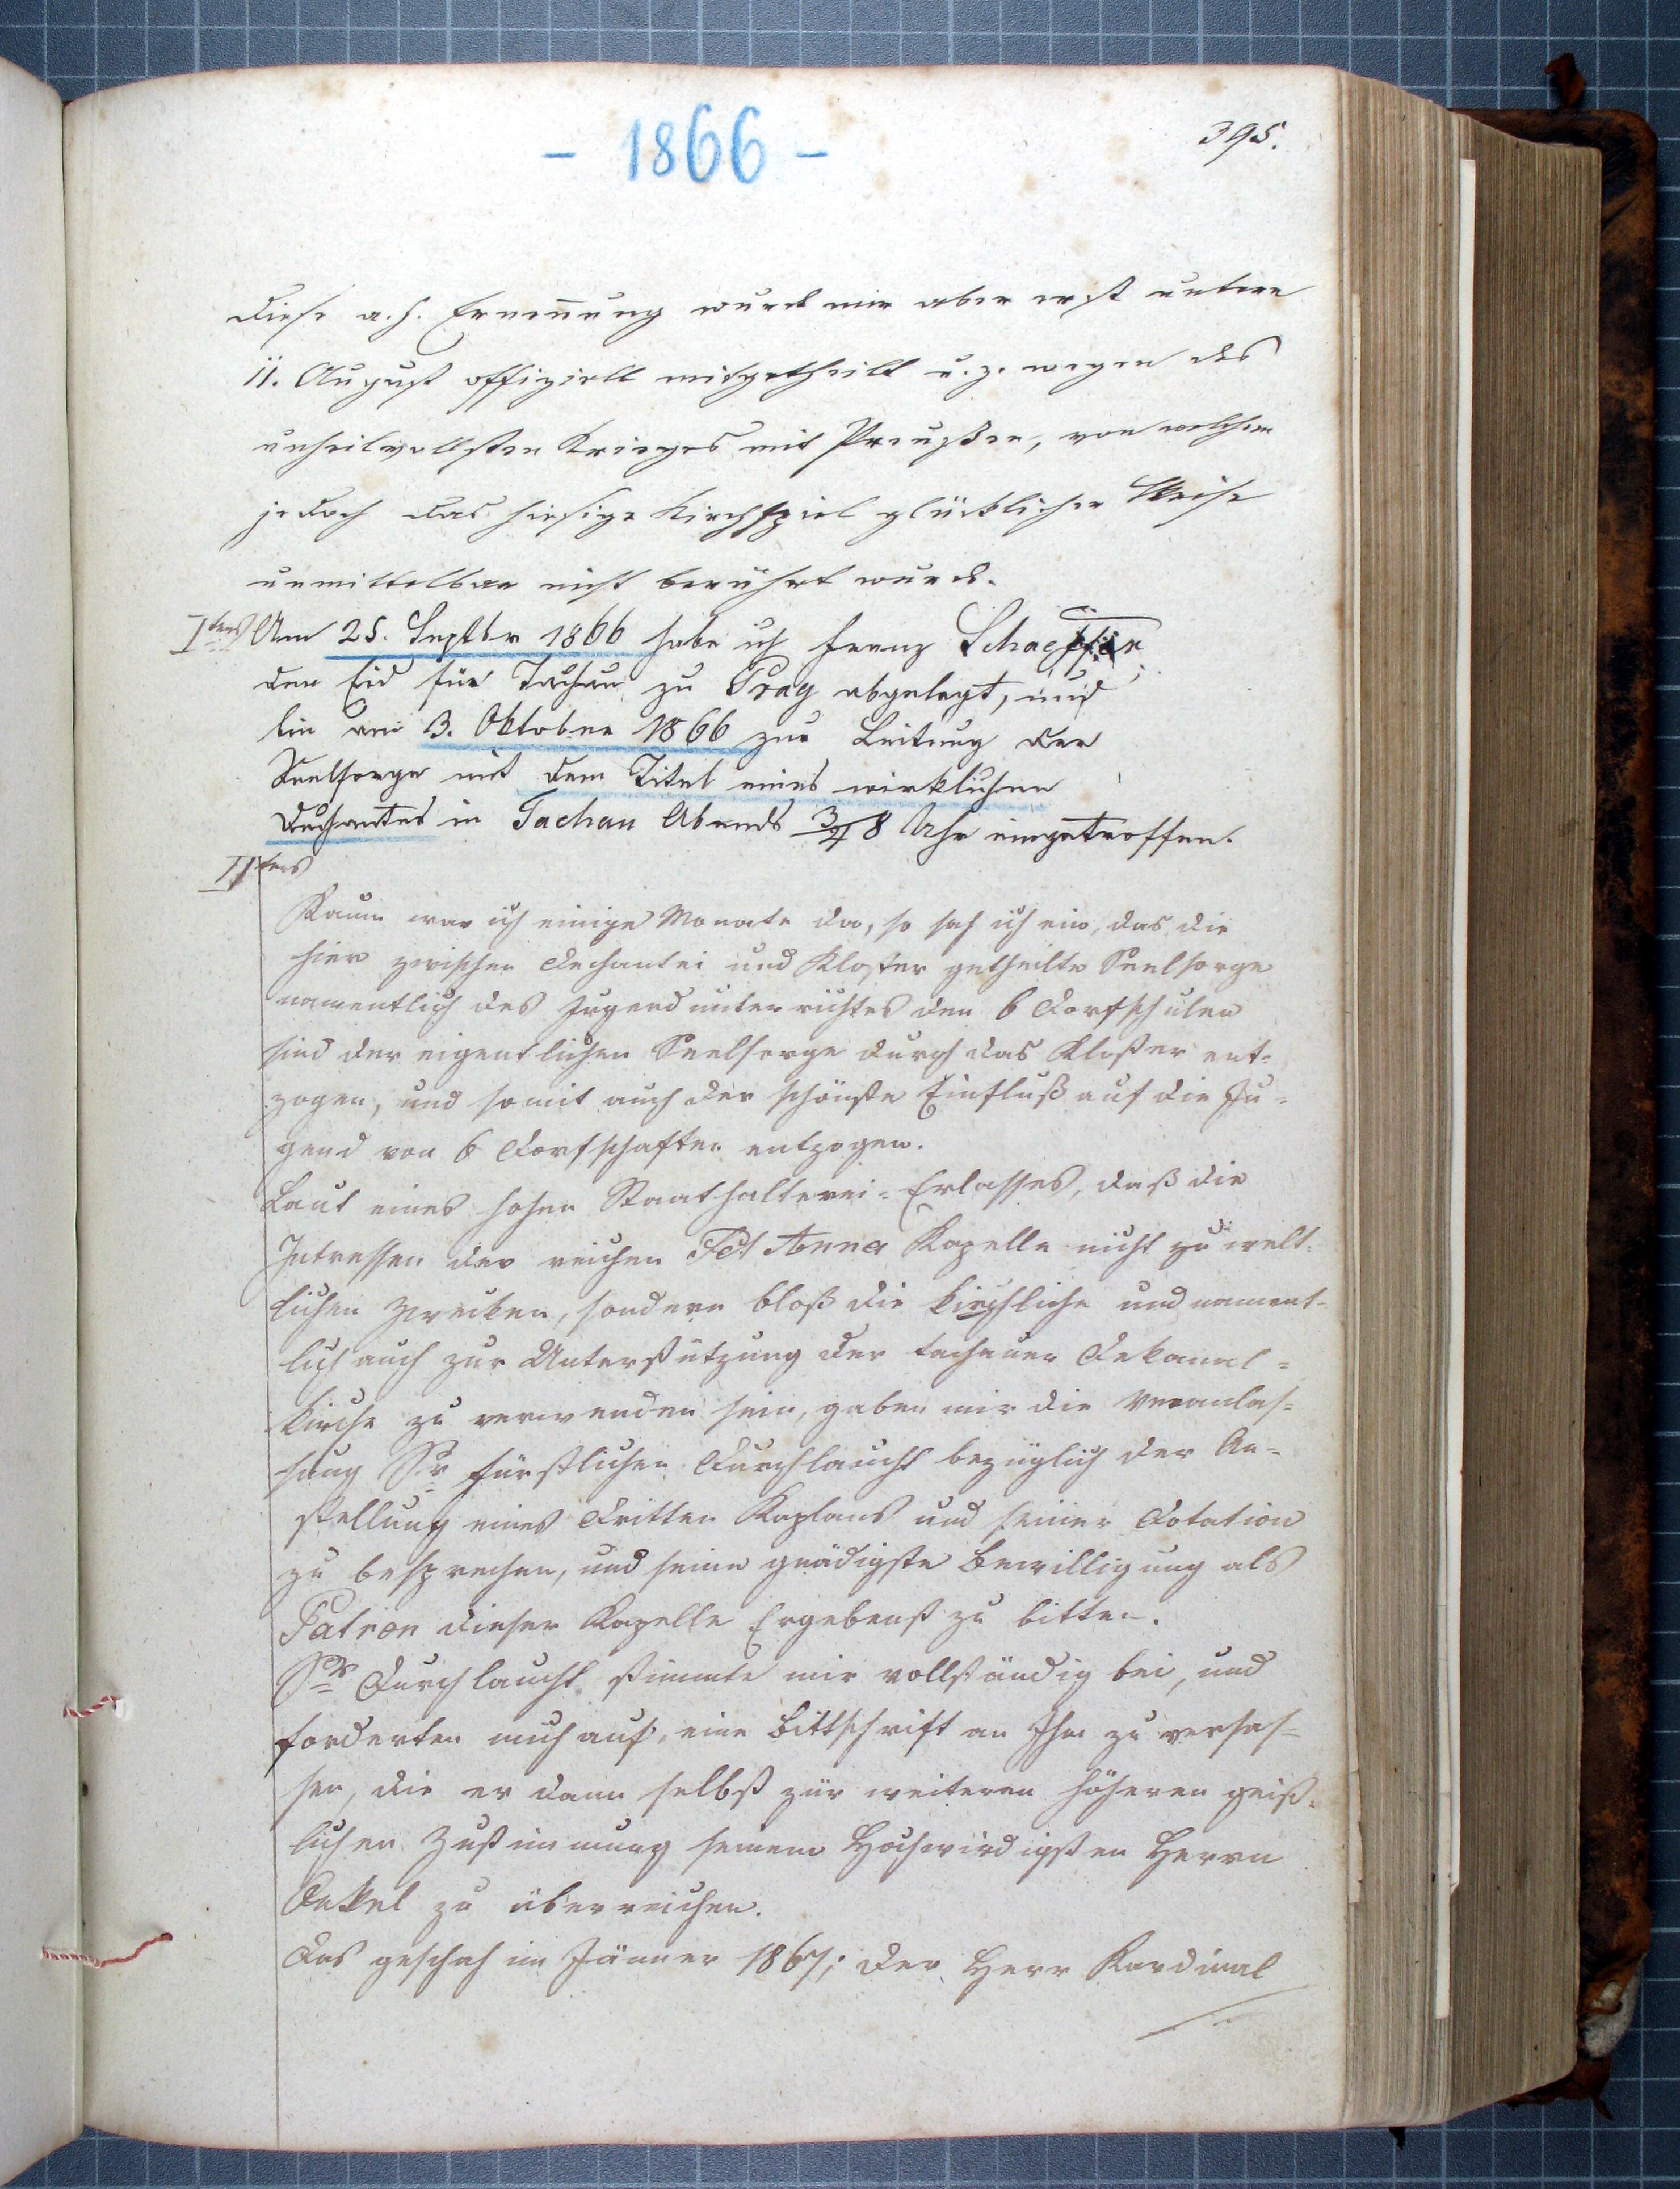 - 1866 -
395.
Diese a. h. Ernennung wurde mir aber erst unterm
11. August offiziell mitgetheilt u. z. wegen des
unheilvollsten Krieges mit Preußen, von welchem
jedoch das hiesige Kirchspiel glücklicher Weise
unmittelbar nicht berührt wurde.
Itens Am 25. Septbr 1866 habe ich Franz Schaeffer
den Eid für Tachau zu Prag abgelegt, und
bin am 3. Oktober 1866 zur Leitung der
Seelsorge mit dem Titel eines wirklichen
Dechantes in Tachau Abends 3/4 8 Uhr eingetroffen.
IItens
Kaum war ich einige Monate da, so sah ich ein, das die
hier zwischen Dechantei und Kloster getheilte Seelsorge
namentlich des Jugendunterrichtes den 6 Dorfschulen
sind der eigentlichen Seelsorge durch das Kloster ent-
zogen, und somit auch der schönste Einfluß auf die Ju-
gend von 6 Dorfschaften entzogen.
Laut eines hohen Staathalterei-Erlasses, daß die
Intressen der reichen Sct Anna Kapelle nicht zu welt-
lichen Zwecken, sondern bloß die kirchliche und nament-
lich auch zur Unterstützung der tachauer Dekanal-
kirche zu verwenden sein, gaben mir die Veranlas-
sung Sr fürstlichen Durchlaucht bezüglich der An-
stellung eines dritten Kaplans und seiner Dotation
zu besprechen, und seine gnädigste Bewilligung als
Patron dieser Kapelle Ergebenst zu bitten.
Sr Durchlaucht stimmte mir vollständig bei, und
forderten mich auf, eine Bittschrift an Ihn zu verfas-
sen, die er dann selbst zur weiteren höheren geist-
lichen Zustimmung seinem Hochwürdigsten Herrn
Onkel zu überreichen.
Das geschah im Jänner 1867; der Herr Kardinal